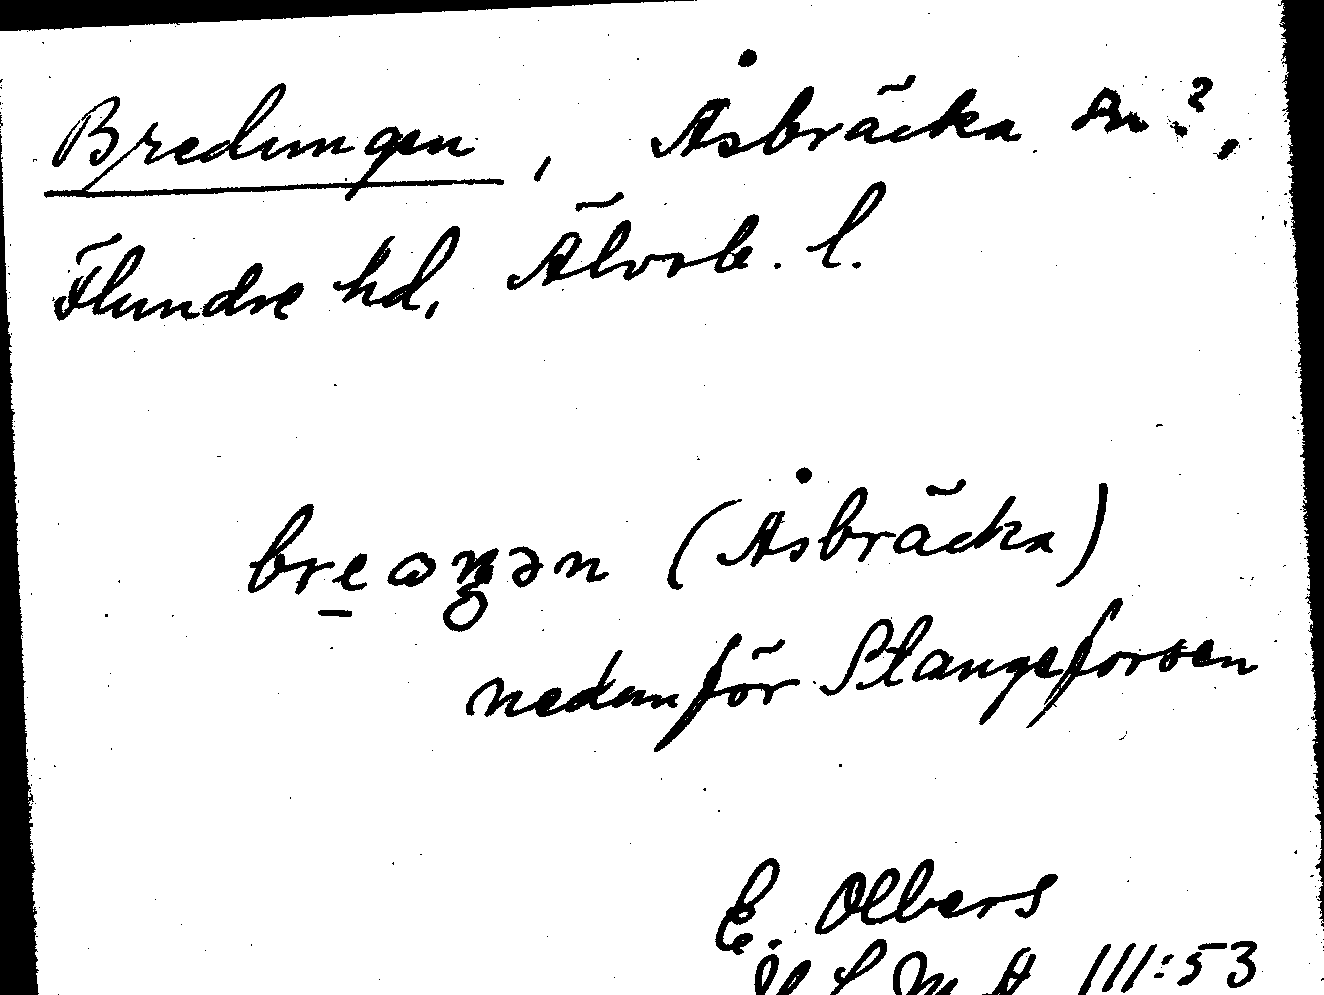 Bredungen, Åsbräcka sn?,
Flundre hd, Älvsb. l.
(Åsbräcka)
nedanför Stangeforsen
E. Olbers
III:53